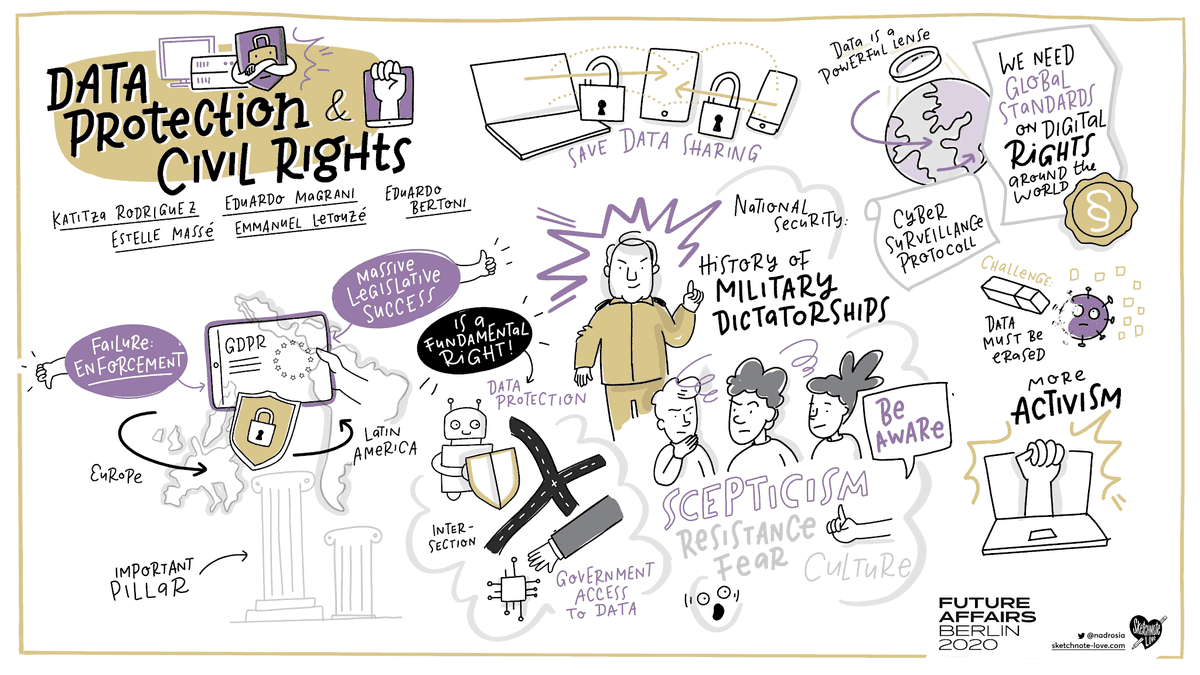 DATA
PROTECTION &
CIVIL RIGHTS
KATITZA RODRIGUEZ
EDUARDO MAGRANI
EDUARDO
BERTONI
ESTELLE MASSÉ
EMMANUEL LETOUZÉ
SAVE DATA SHARING
DATA IS A
POWERFUL LENSE
WE NEED
GLOBAL
STANDARDS
ON DIGITAL
RIGHTS
AROUND the
WORLD
§
CYBER
SURVEILLANCE
PROTOCOLL
NATIONAL
SECURITY:
HISTORY OF
MILITARY
DICTATORSHIPS
MASSIVE
LEGISLATIVE
SUCCESS
FAILURE:
ENFORCEMENT
GDPR
EUROPE
LATIN
AMERICA
IMPORTANT
PILLAR
IS A
FUNDAMENTAL
RIGHT!
DATA
PROTECTION
INTER-
SECTION
GOVERNMENT
ACCESS
TO DATA
BE
AWARE
SCEPTICISM
RESISTANCE
FEAR
CULTURE
CHALLENGE:
DATA
MUST BE
ERASED
MORE
ACTIVISM
FUTURE
AFFAIRS
BERLIN
2020
@nadrosia
sketchnote-love.com
Sketchnote
Love